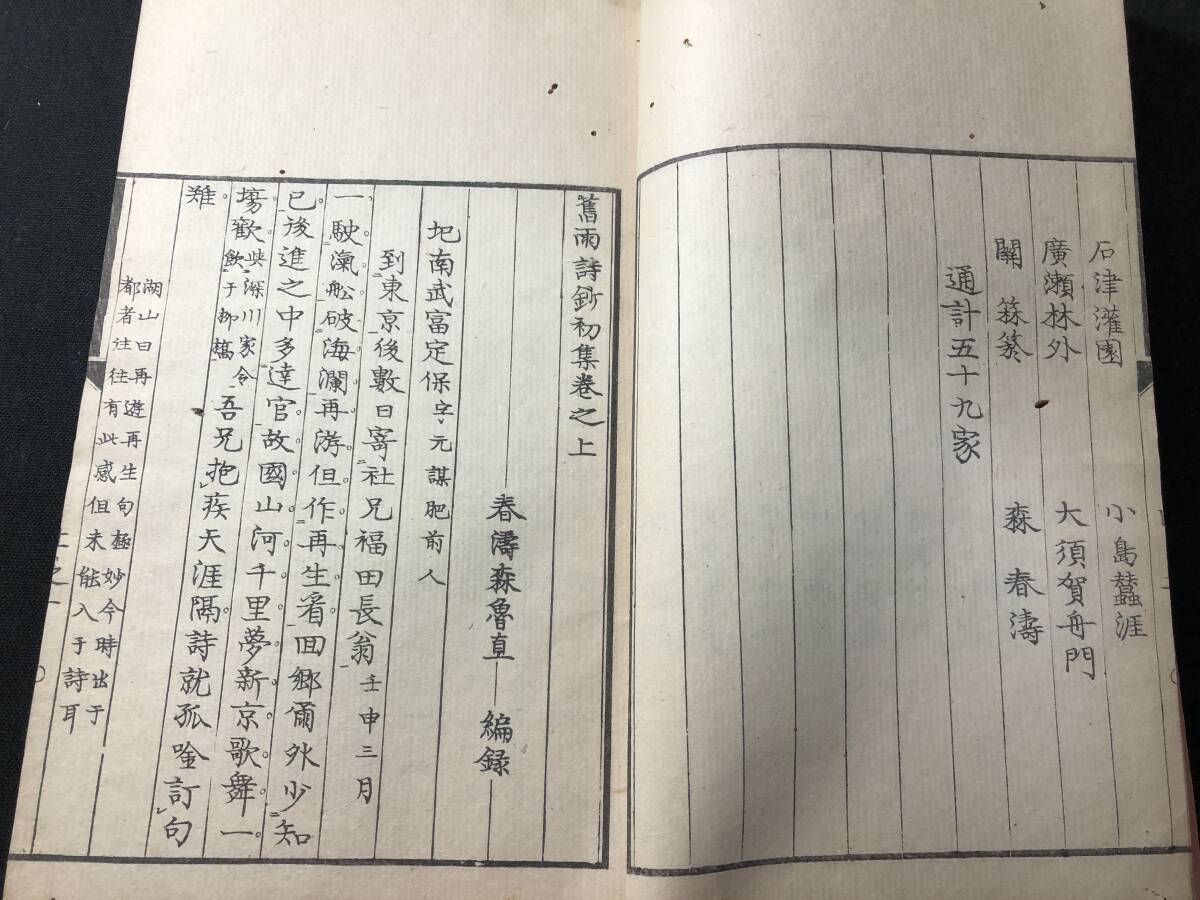 石津灌園　小島蠶涯
廣瀬林外　大須賀舟門
關　菻䇹　森　春濤
通計五十九家
舊雨詩鈔初集卷之上
春濤森魯直　編録
圯南武富定保　字元謀肥前人
到東京後數日寄社兄福田長翁　壬申三月
一駛滊舩破海瀾再游但作再生看囬郷爾外少知
已後進之中多達官故國山河千里夢新京歌舞一
塲歡　此深川家令
飲于柳橋　吾兄抱疾天涯隔詩就孤唫訂句
难
湖山曰再遊再生句極妙今時出于
都者往往有此感但未能入于詩耳